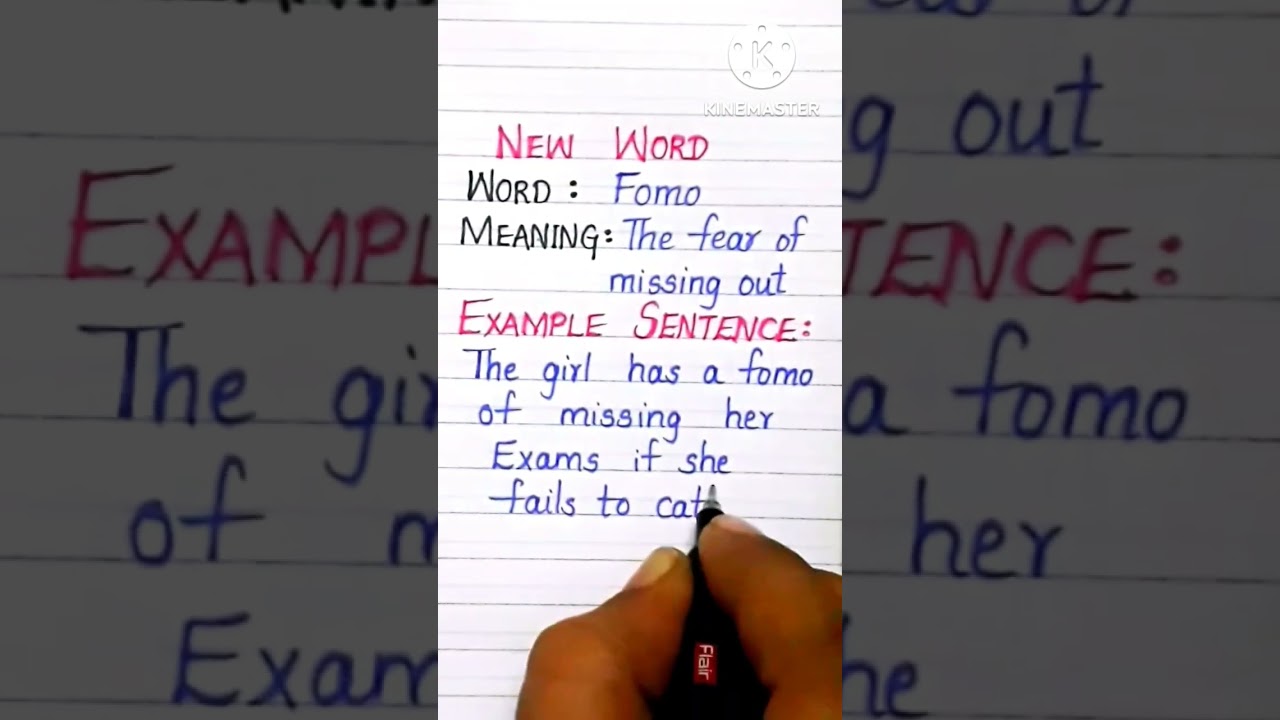 KINEMASTER
NEW WORD
WORD: Fomo
MEANING: The fear of
missing out
EXAMPLE SENTENCE:
The girl has a fomo
of missing her
Exams if she
fails to cat
Flair